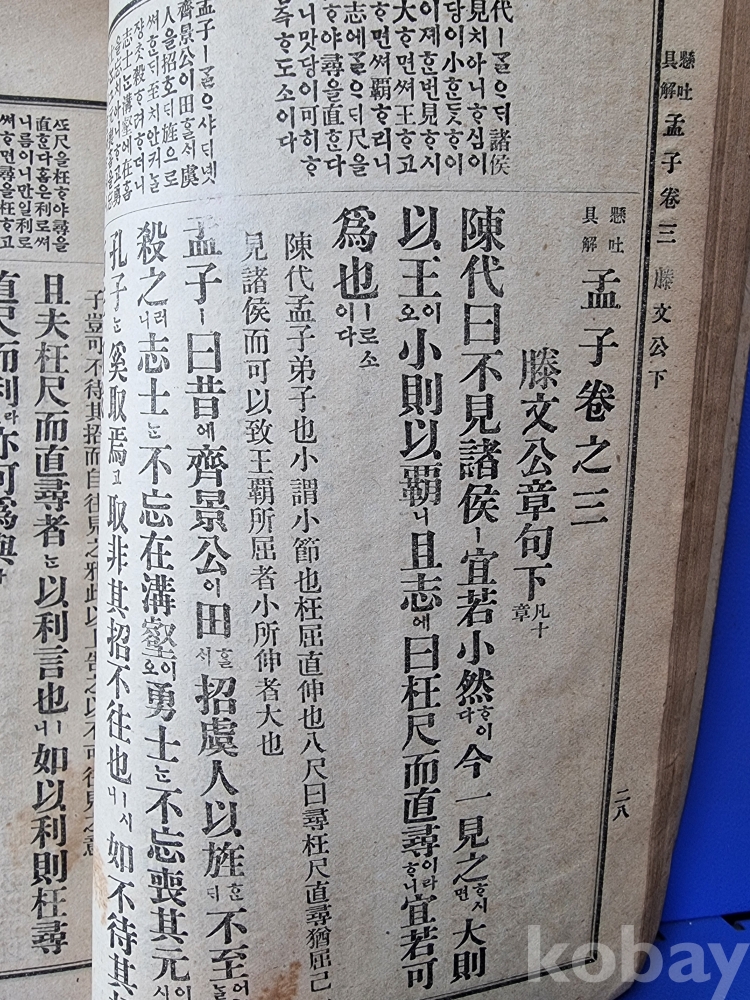 懸吐
具解
孟子卷三
滕文公下
二八
代ㅣᄀᆞᆯ으ᄃᆡ諸侯
見치아니ᄒᆞ심이
당이小ᄒᆞᆫ듯ᄒᆞ이
이졔ᄒᆞᆫ번見ᄒᆞ시
大ᄒᆞ면써王ᄒᆞ고
ᄒᆞ면써覇ᄒᆞ리니
志에ᄀᆞᆯ으ᄃᆡ尺을
ᄒᆞ야尋을直ᄒᆞᆫ다
니맛당이可히ᄒᆞ
즉ᄒᆞ도소이다
孟子ㅣᄀᆞᆯ으샤ᄃᆡ녯
齊景公이田ᄒᆞᆯᄉᆡ虞
人을招호ᄃᆡ旌으로
써ᄒᆞᆫᄃᆡ至치안커ᄂᆞᆯ
쟝ᄎᆞᆺ殺ᄒᆞ려ᄒᆞ더니
志士ᄂᆞᆫ溝壑에在홈
懸吐
具解
孟子卷之三
滕文公章句下 凡十章
陳代曰不見諸侯ㅣ宜若小然ᄒᆞ이다今一見之ᄒᆞ시면大則
以王이오小則以覇니且志에曰枉尺而直尋이라ᄒᆞ니宜若可
爲也ㅣ로소이다
陳代孟子弟子也小謂小節也枉屈直伸也八尺曰尋枉尺直尋猶屈己
見諸侯而可以致王覇所屈者小所伸者大也
孟子ㅣ曰昔에齊景公이田ᄒᆞᆯ서招虞人以旌ᄒᆞᆫ디不至어ᄂᆞᆯ
殺之러니志士ᄂᆞᆫ不忘在溝壑이오勇士ᄂᆞᆫ不忘喪其元이
孔子ᄂᆞᆫ奚取焉고取非其招不往也ㅣ시니如不待其
ᄯᅩ尺을枉ᄒᆞ야尋을
直ᄒᆞ다홈은利로써
니름이니만일利로
써ᄒᆞ면尋을枉ᄒᆞ고
子豈可不待其招而自往見之邪此以上告之以不可往見之意
且夫枉尺而直尋者ᄂᆞᆫ以利言也ㅣ니如以利則枉尋
直尺而利라亦可爲與
kobay